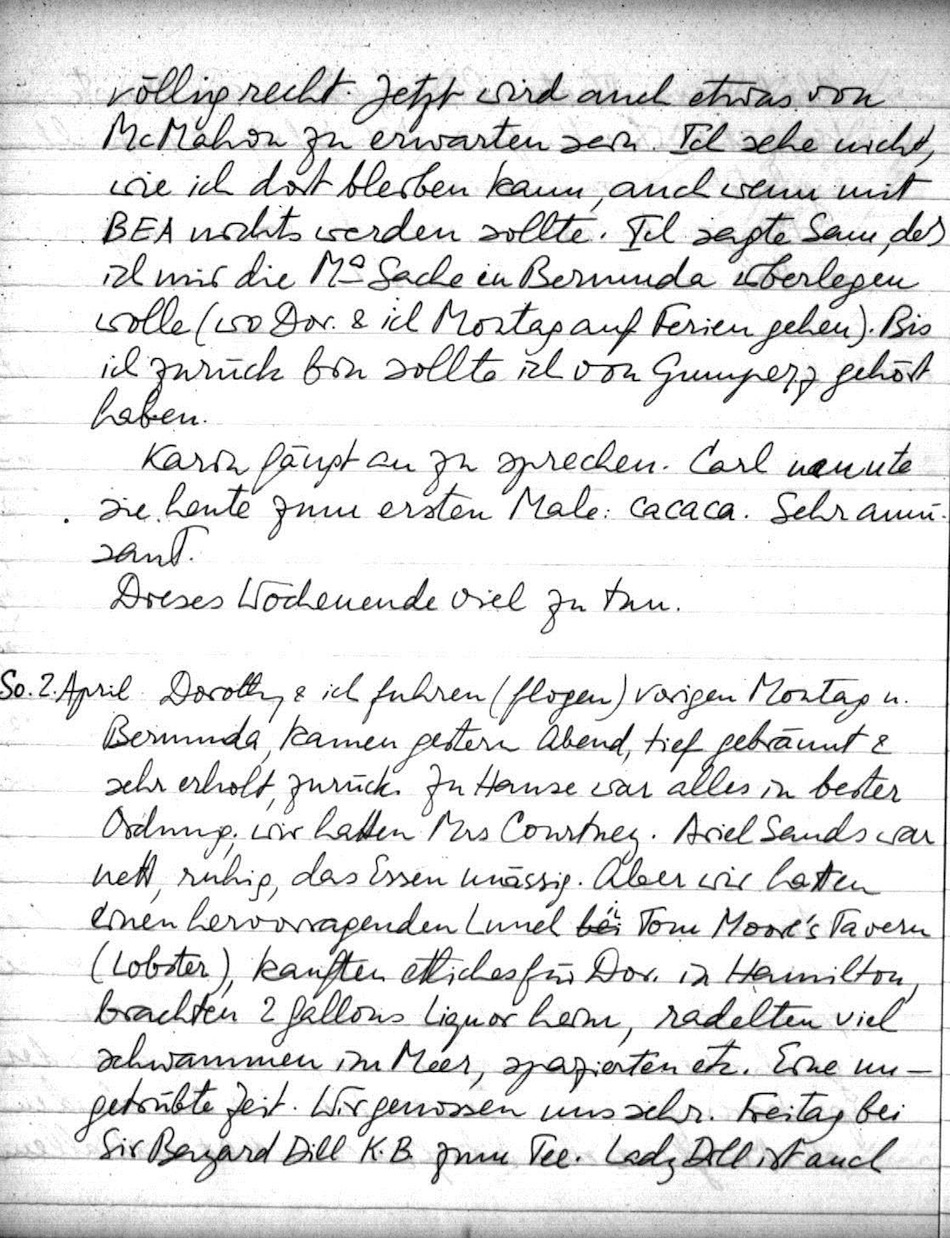 völlig recht. Jetzt wird auch etwas von
McMahon zu erwarten sein. Ich sehe nicht,
wie ich dort bleiben kann, auch wenn mit
BEA nichts werden sollte. Ich sagte Sam, dass
ich mir die Sache in Bermuda überlegen
wolle (wo Dor. & ich Montag auf Ferien gehen). Bis
ich zurück bin sollte ich von Gumperz gehört
haben.
Karin fängt an zu sprechen. Carl nannte
sie heute zum ersten Male: cacaca. Sehr amü-
sant.
Dieses Wochenende viel zu tun.
So. 2. April. Dorothy & ich fuhren (flogen) vorigen Montag n.
Bermuda, kamen gestern Abend, tief gebräunt &
sehr erholt, zurück. Zu Hause war alles in bester
Ordnung, wir hatten Mrs Courtney. Ariel Sands war
nett, ruhig, das Essen mässig. Aber wir hatten
einen hervorragenden Lunch bei in Tom Moore's Tavern
(Lobster), kauften etliches für Dor. in Hamilton,
brachten 2 Gallons Liquor heim, radelten viel
schwammen im Meer, spazierten etc. Eine un-
getrübte Zeit. Wir genossen uns sehr. Freitag bei
Sir Bayard Dill K.B. zum Tee. Lady Dill ist auch